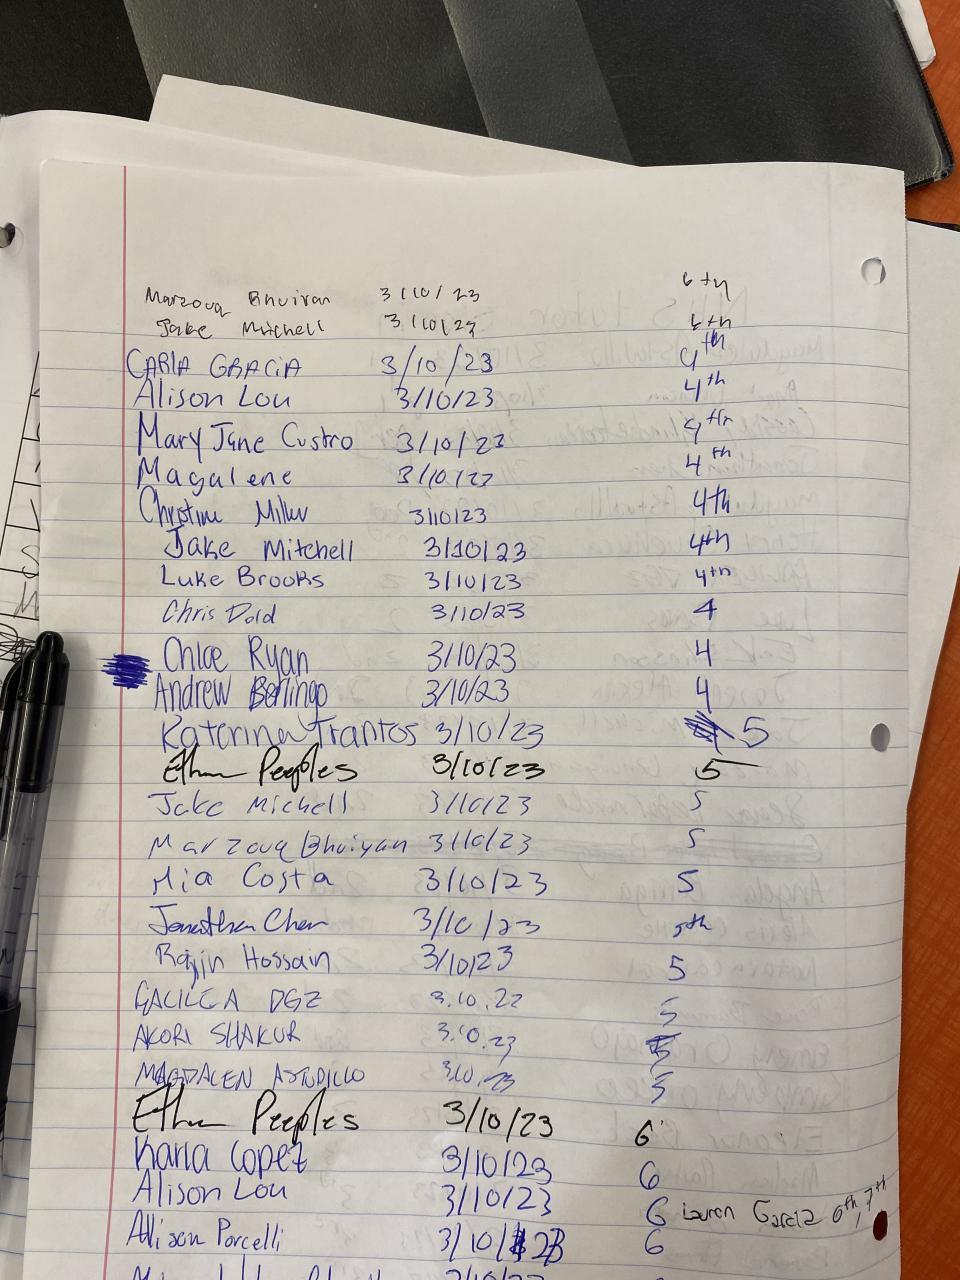 Marzouq Bhuiyan 3/10/23 6th
Jake Mitchell 3/10/23 6th
CARLA GRACIA 3/10/23 4th
Alison Lou 3/10/23 4th
Mary Jane Custro 3/10/23 4th
Magalene 3/10/22 4th
Christine Miller 3/10/23 4th
Jake Mitchell 3/10/23 4th
Luke Brooks 3/10/23 4th
Chris Dold 3/10/23 4
Chloe Ryan 3/10/23 4
Andrew Berlingo 3/10/23 4
Katerina Frantos 3/10/23 5
Ethan Peeples 3/10/23 5
Jake Michell 3/10/23 5
Marzouq Bhuiyan 3/10/23 5
Mia Costa 3/10/23 5
Jonathan Chen 3/10/23 5th
Rajin Hossain 3/10/23 5
GALILEA DGZ 3.10.22 5
AKORI SHAKUR 3.10.23 5
MAGDALEN ASTUDILLO 3.10.23 5
Ethan Peeples 3/10/23 6
Karla Lopez 3/10/23 6
Alison Lou 3/10/23 6 Lauren Garcia 6th, 7th
Allison Porcelli 3/10/23 6